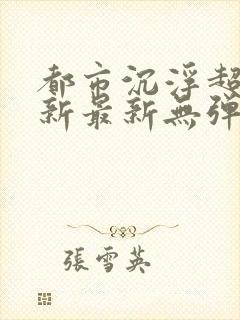 都市沉浮超
新最新無弹
張雪英